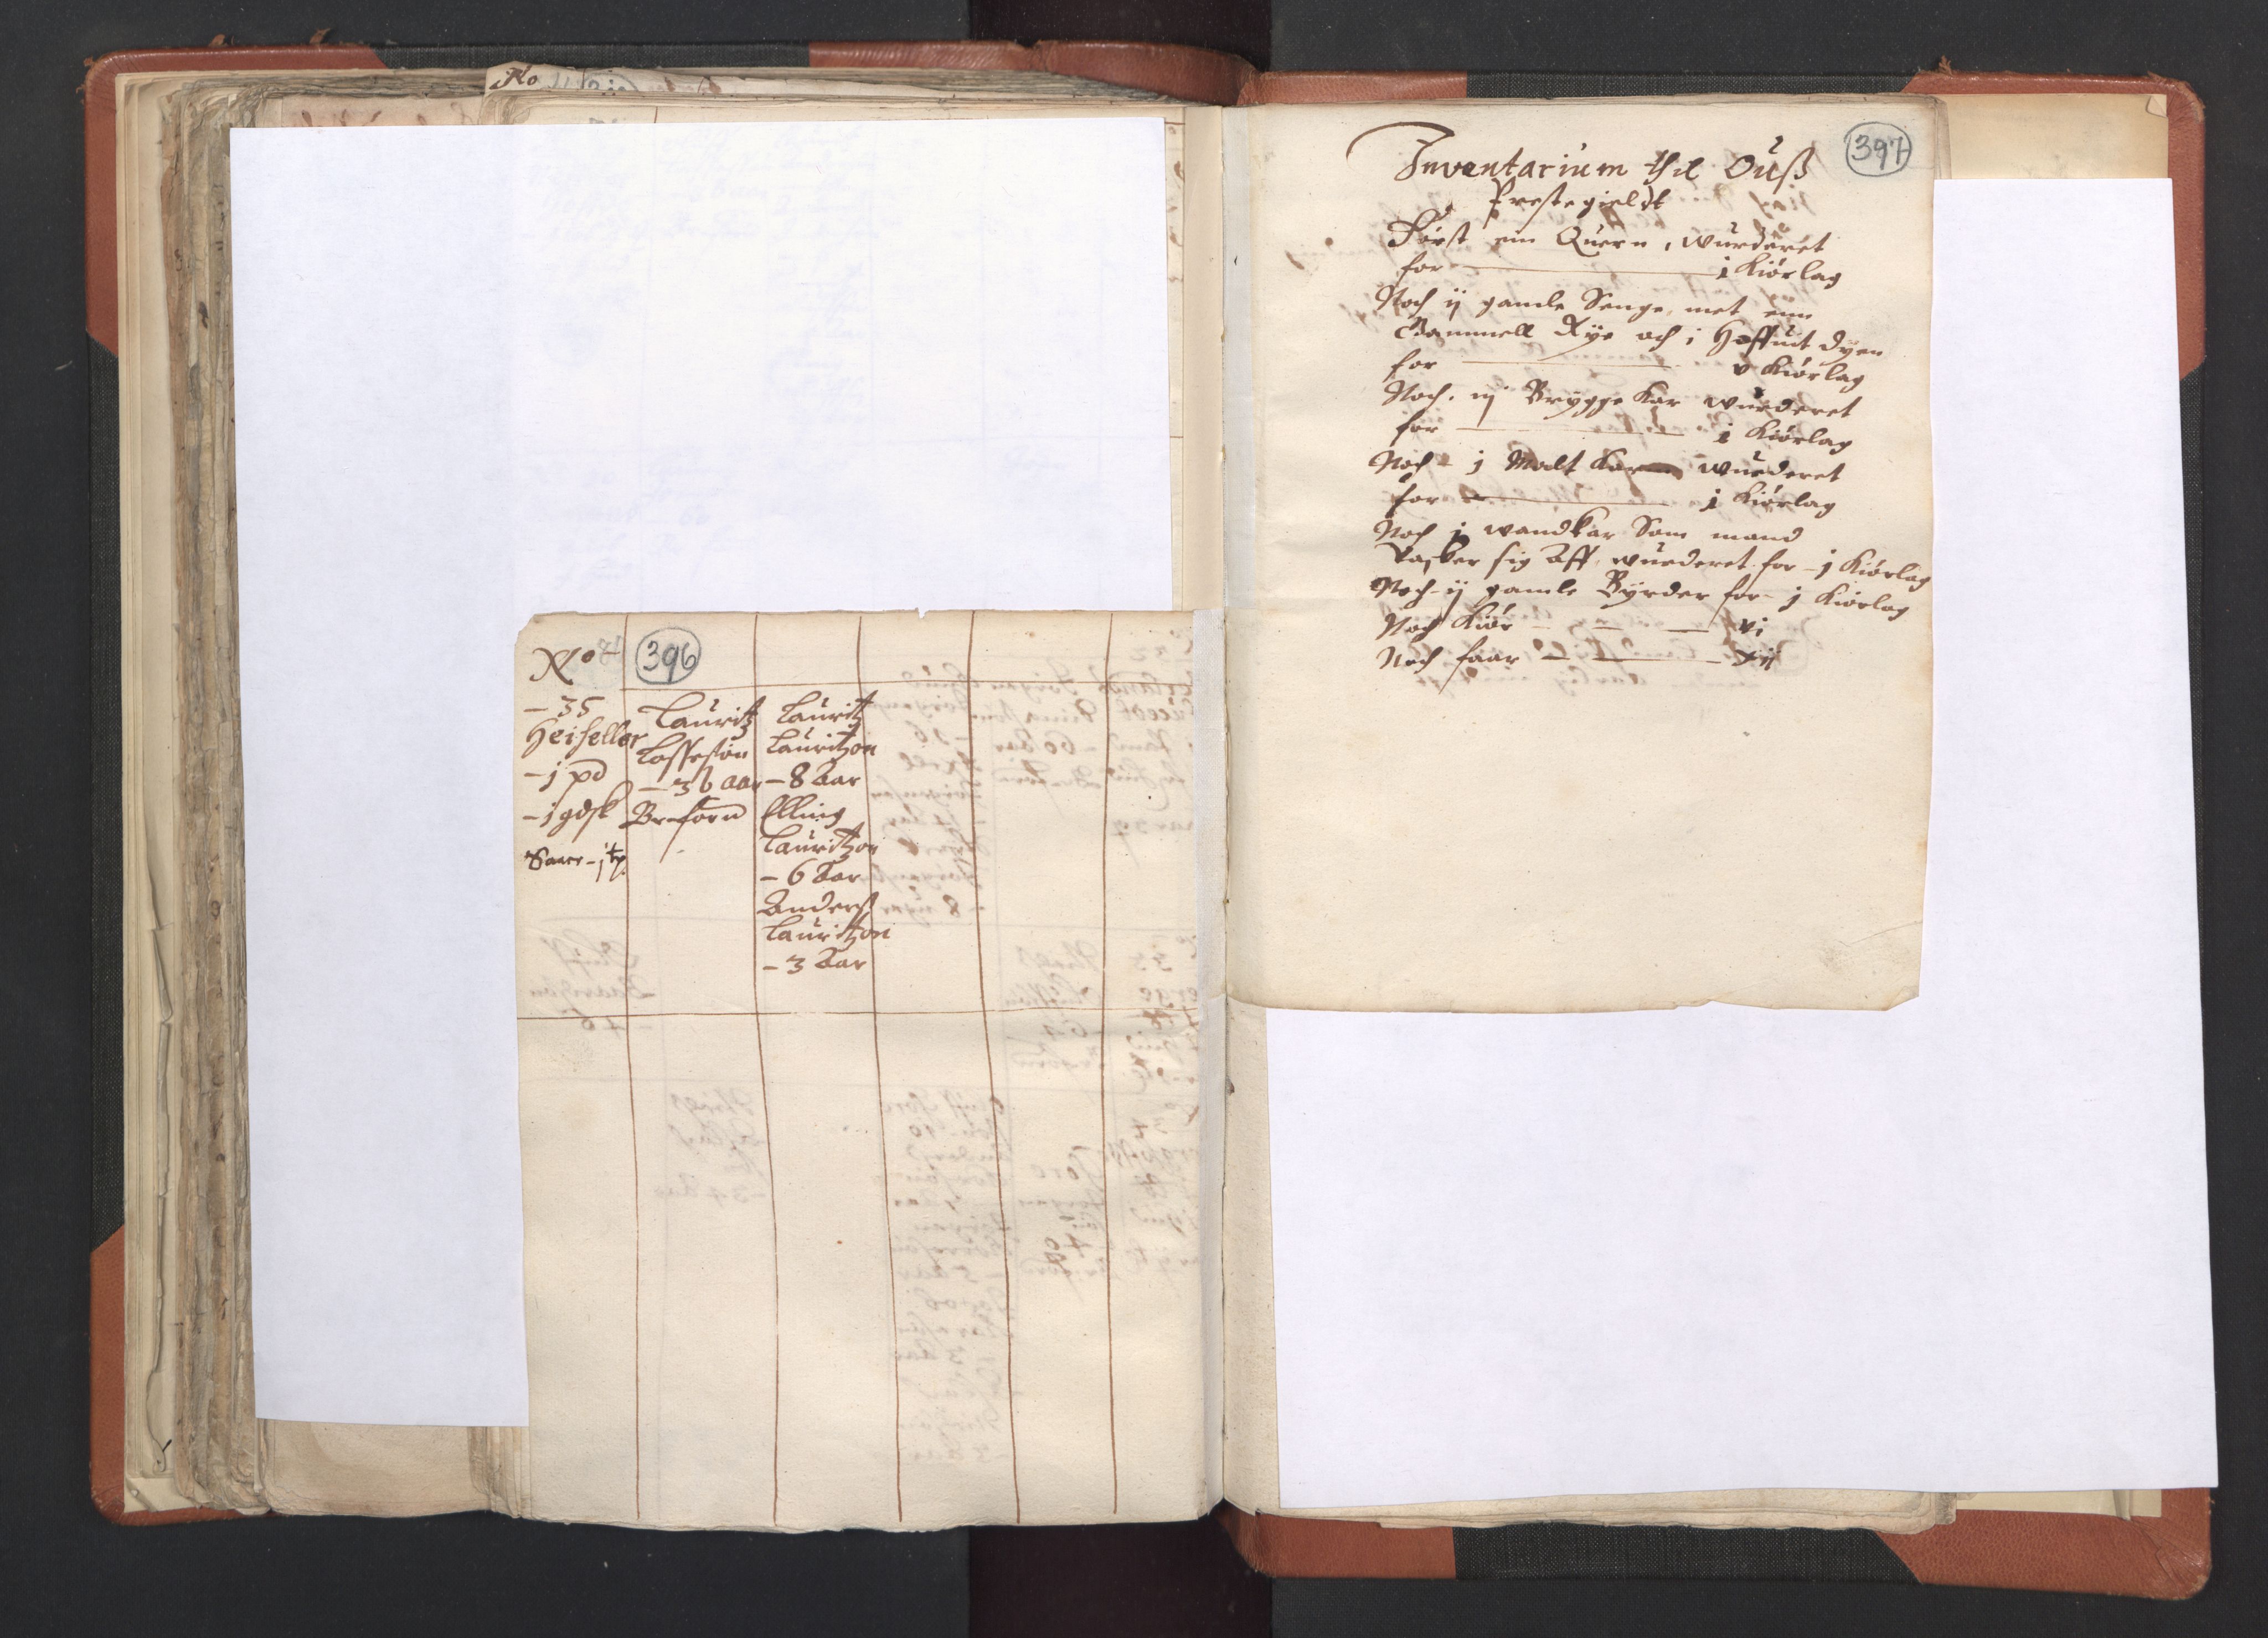 No
396
No
- 35
Heiseller
- j pd
- j gdsk
Saaer - j tp.
Lauritz
Lassesøn
- 36 aar
Br-forn
Lauritz
Lauritzøn
- 8 Aar
Elling
Lauritzøn
- 6 Aar
Anderß
Lauritzøn
- 3 Aar
397
Inventarium thil Ouß
Prestegieldt
Först em Quern, wurderet
for — i Kiörlag
Noch ij gamle Senge, met een
Gammell Rye och i Hoffuit dyen
for — v Kiörlag
Noch iij Brygge Kar wurderet
for — j Kiörlag
Noch - j Malt Kar wurderet
for — j Kiörlag
Noch j wandkar Som mand
Vasker sig Aff, wurderet for - j Kiörlag
Noch - ij gamle Byrder for - j Kiörlag
Noch Kiör — vi
Noch faar — xij